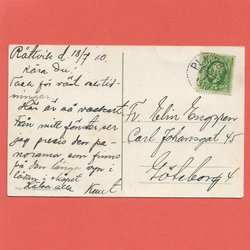 Rättvik d. 18/7 10.
Kära Du!
Tack för vårt
Här är så vackert
Från mitt fönster ser
jag precis den pa-
norama, som finns
på den långa vyn i
lådan, i skåpet
Hälsa alla
Knut
Fr. Elin Engman
Carl Johansgat 45
Göteborg 4